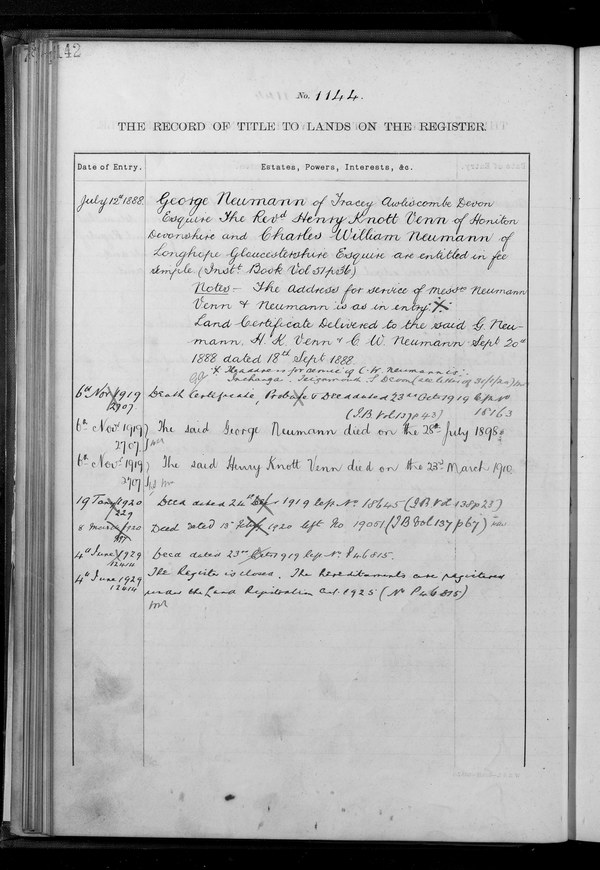 142
No. 1144.
THE RECORD OF TITLE TO LANDS ON THE REGISTER.
Date of Entry. Estates, Powers, Interests, &c.
July 12th 1888. George Neumann of Tracey Awliscombe Devon
Esquire The Revd Henry Knott Venn of Honiton
Devonshire and Charles William Neumann of
Longhope Gloucestershire Esquire are entitled in fee
simple (Instt Book Vol 51 p 36)
Notes – The address for service of Messrs Neumann
Venn & Neumann is as in entry
Land Certificate Delivered to the said G. Neu-
mann, H. K. Venn & C. W. Neumann Sept 20th
1888 dated 18th Sept 1888
X The address for service of C. W. Neumann is:-
Teignmouth S Devon (see letter of
6th Nov 1919 Death Certificate, Probate & Deed dated 23rd Octr 1919 left No
2707. (I.B Vol 137 p 43) 18163
6th Novr 1919 The said George Neumann died on the 28th July 1898.
2707
6th Novr 1919 The said Henry Knott Venn died on the 23rd March 1910
2707
19 Jany 1920 Deed dated 24th Decr 1919 left No 18645 (I B Vol 138 p 28)
229
8 March 1920 Deed dated 13 Feby 1920 left No 19051 (I B Vol 137 p 67)
4th June 1929 Deed dated 23rd 1919 left No P46815.
12414
4th June 1929 The Register is closed. The hereditaments are registered
12414
under the Land Registration Act. 1925 (No P46815)